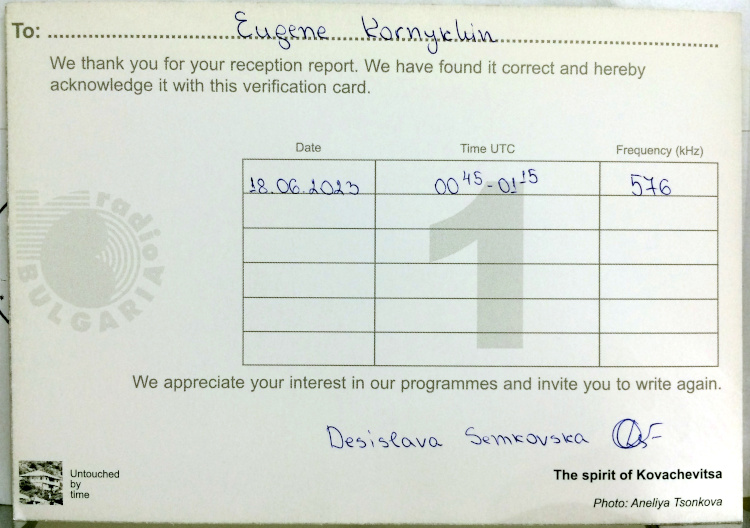 To: Eugene Kornykhin
We thank you for your reception report. We have found it correct and hereby
acknowledge it with this verification card.
Date Time UTC Frequency (kHz)
18.06.2023 00 45 - 01 15 576
radio
BULGARIA
1
We appreciate your interest in our programmes and invite you to write again.
Desislava Semkovska
Untouched
by
time
The spirit of Kovachevitsa
Photo: Aneliya Tsonkova